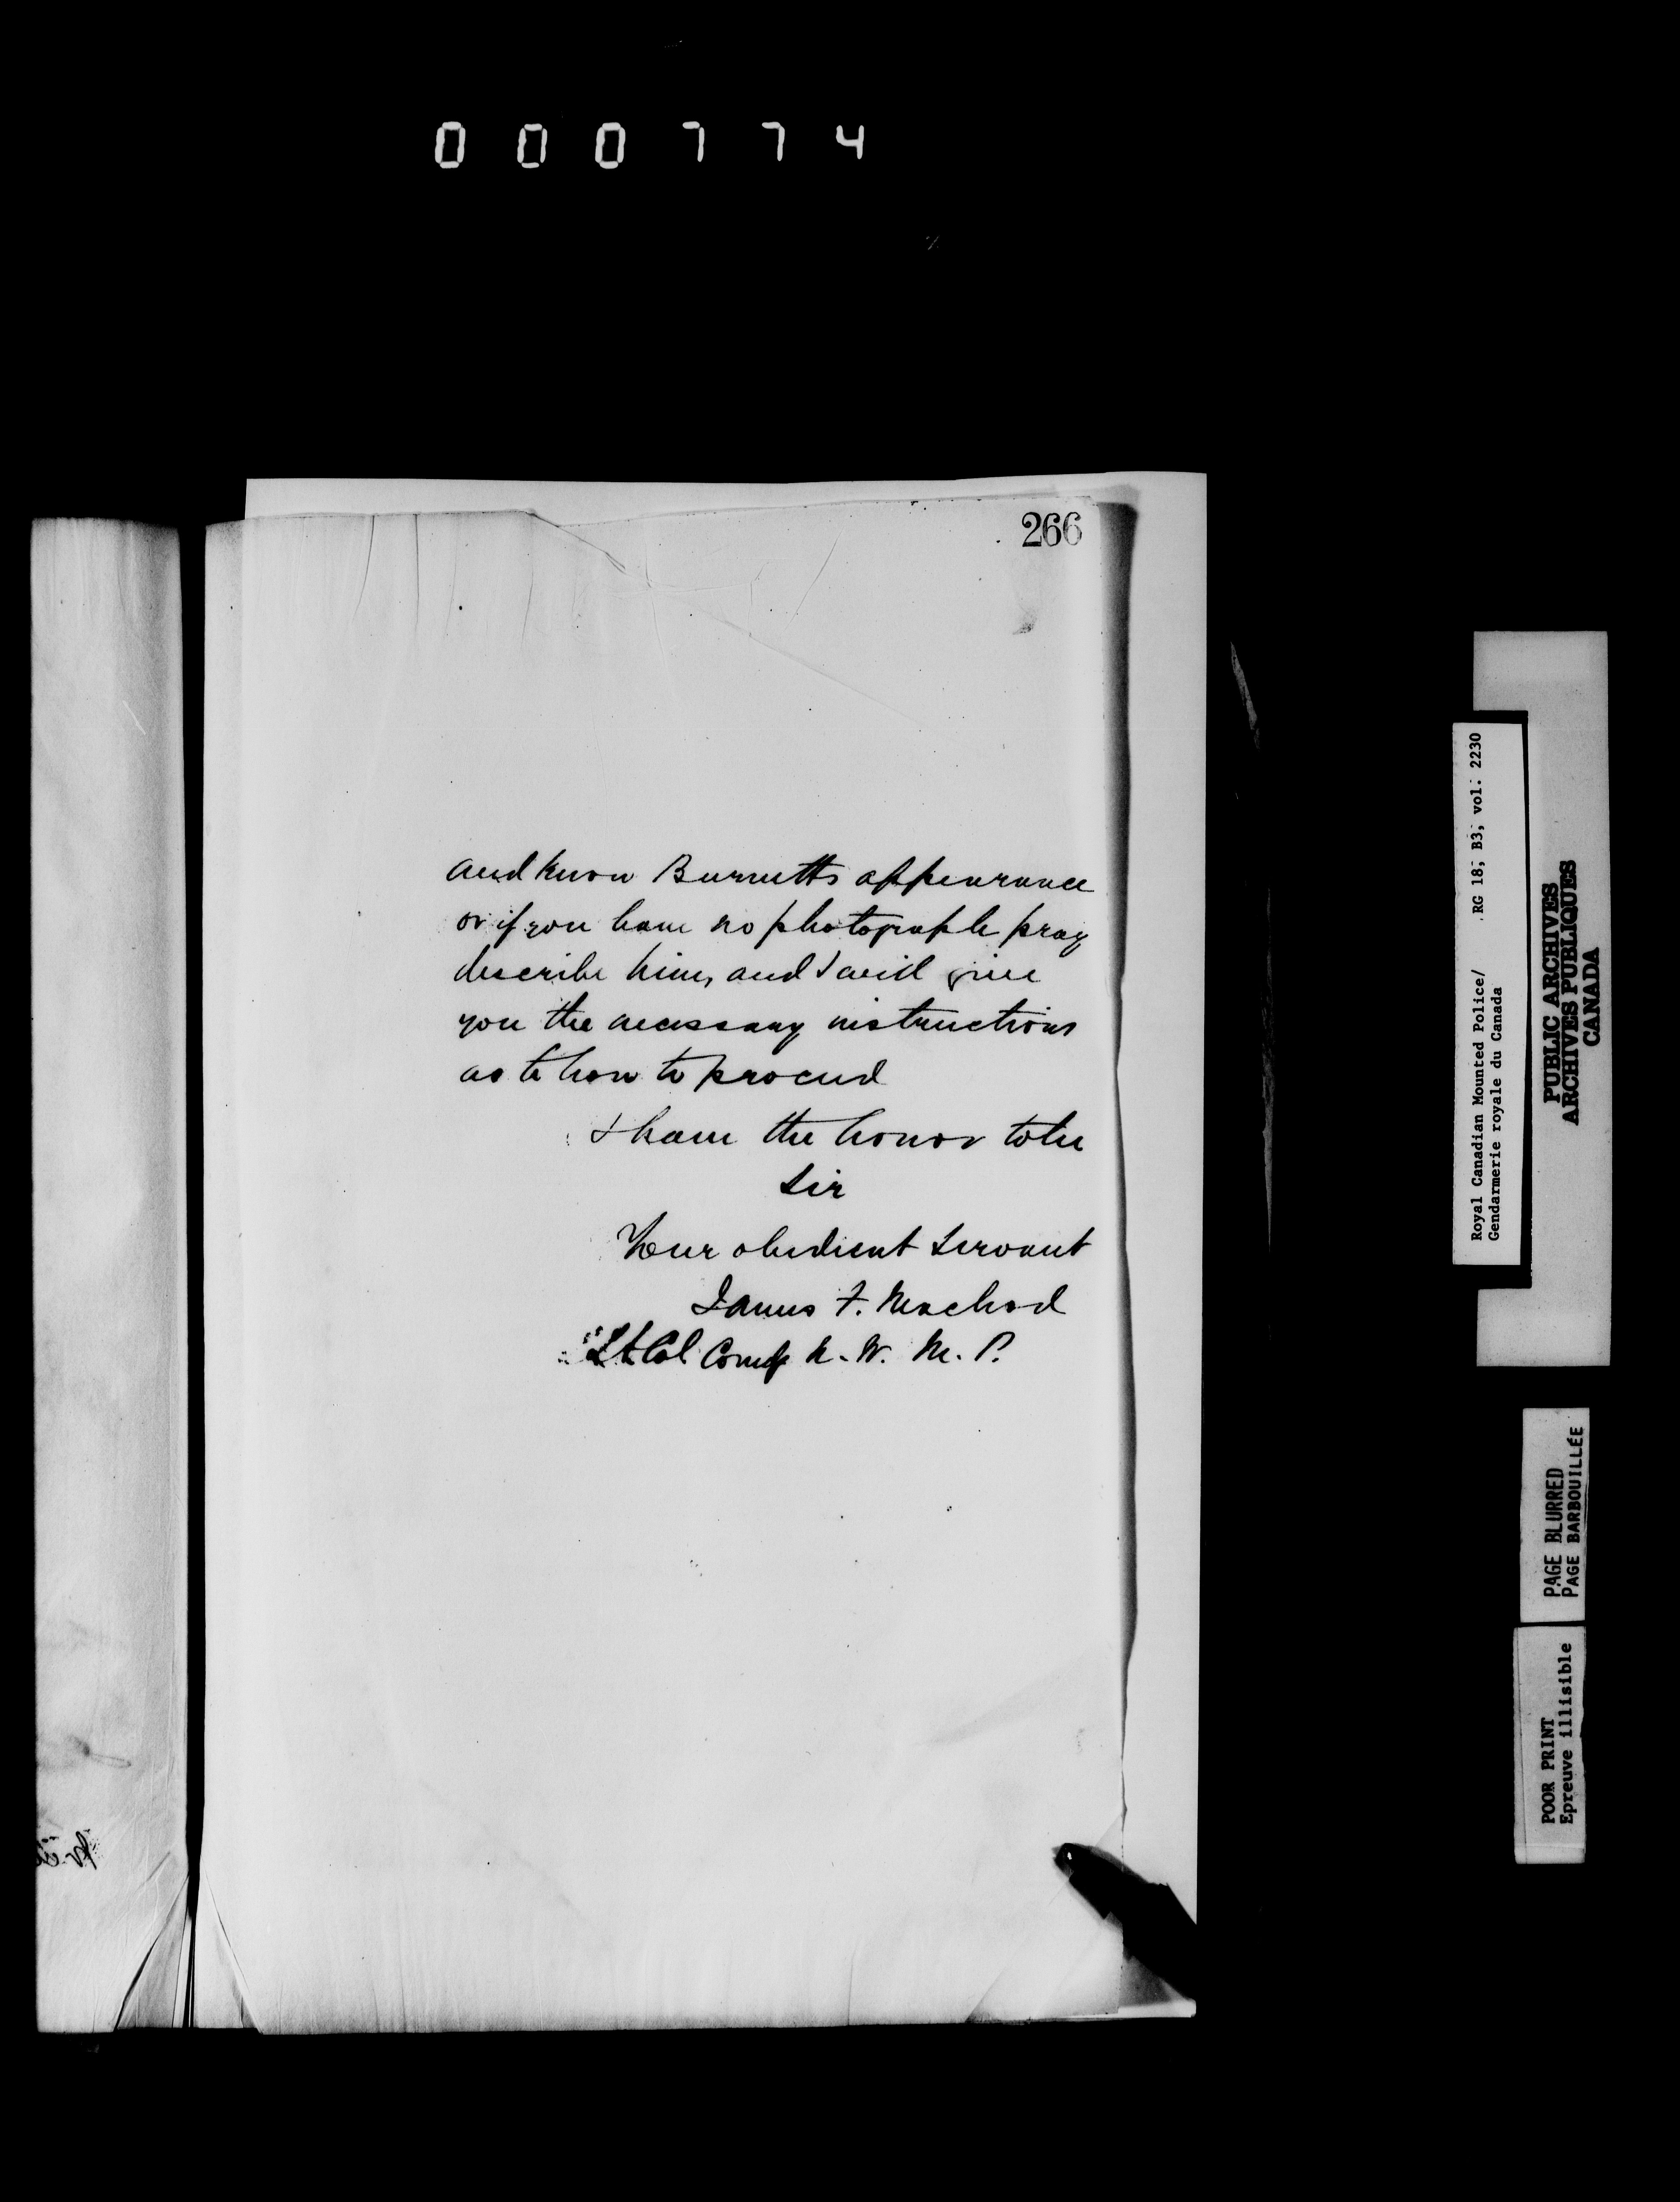 000774
266
and know Burnetts appearance
or if you have no photograph pray
describe him, and I will give
you the necessary instructions
as to how to proceed
I have the honor to be
Sir
Your obedient Servant
James F. Macleod
Lt Col Comg N. W. M. P.
Royal Canadian Mounted Police/ RG 18, B3, vol. 2230
Gendarmerie royale du Canada
PUBLIC ARCHIVES
ARCHIVES PUBLIQUES
CANADA
PAGE BLURRED
PAGE BARBOUILLÉE
POOR PRINT
Epreuve illisible